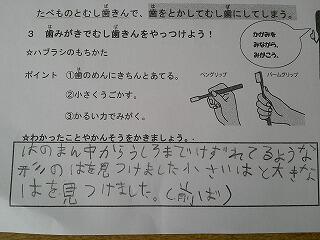 たべものとむし歯きんで、歯をとかしてむし歯にしてしまう。
3 歯みがきでむし歯きんをやっつけよう！
☆ハブラシのもちかた
ポイント ①歯のめんにきちんとあてる。
②小さくうごかす。
③かるい力でみがく。
かがみを
みながら、
みがこう。
ペングリップ
パームグリップ
☆わかったことやかんそうをかきましょう。
はのまん中からうしろまでけずれてるような
形のはを見つけました小さいはと大きな
はを見つけました。(前ば)